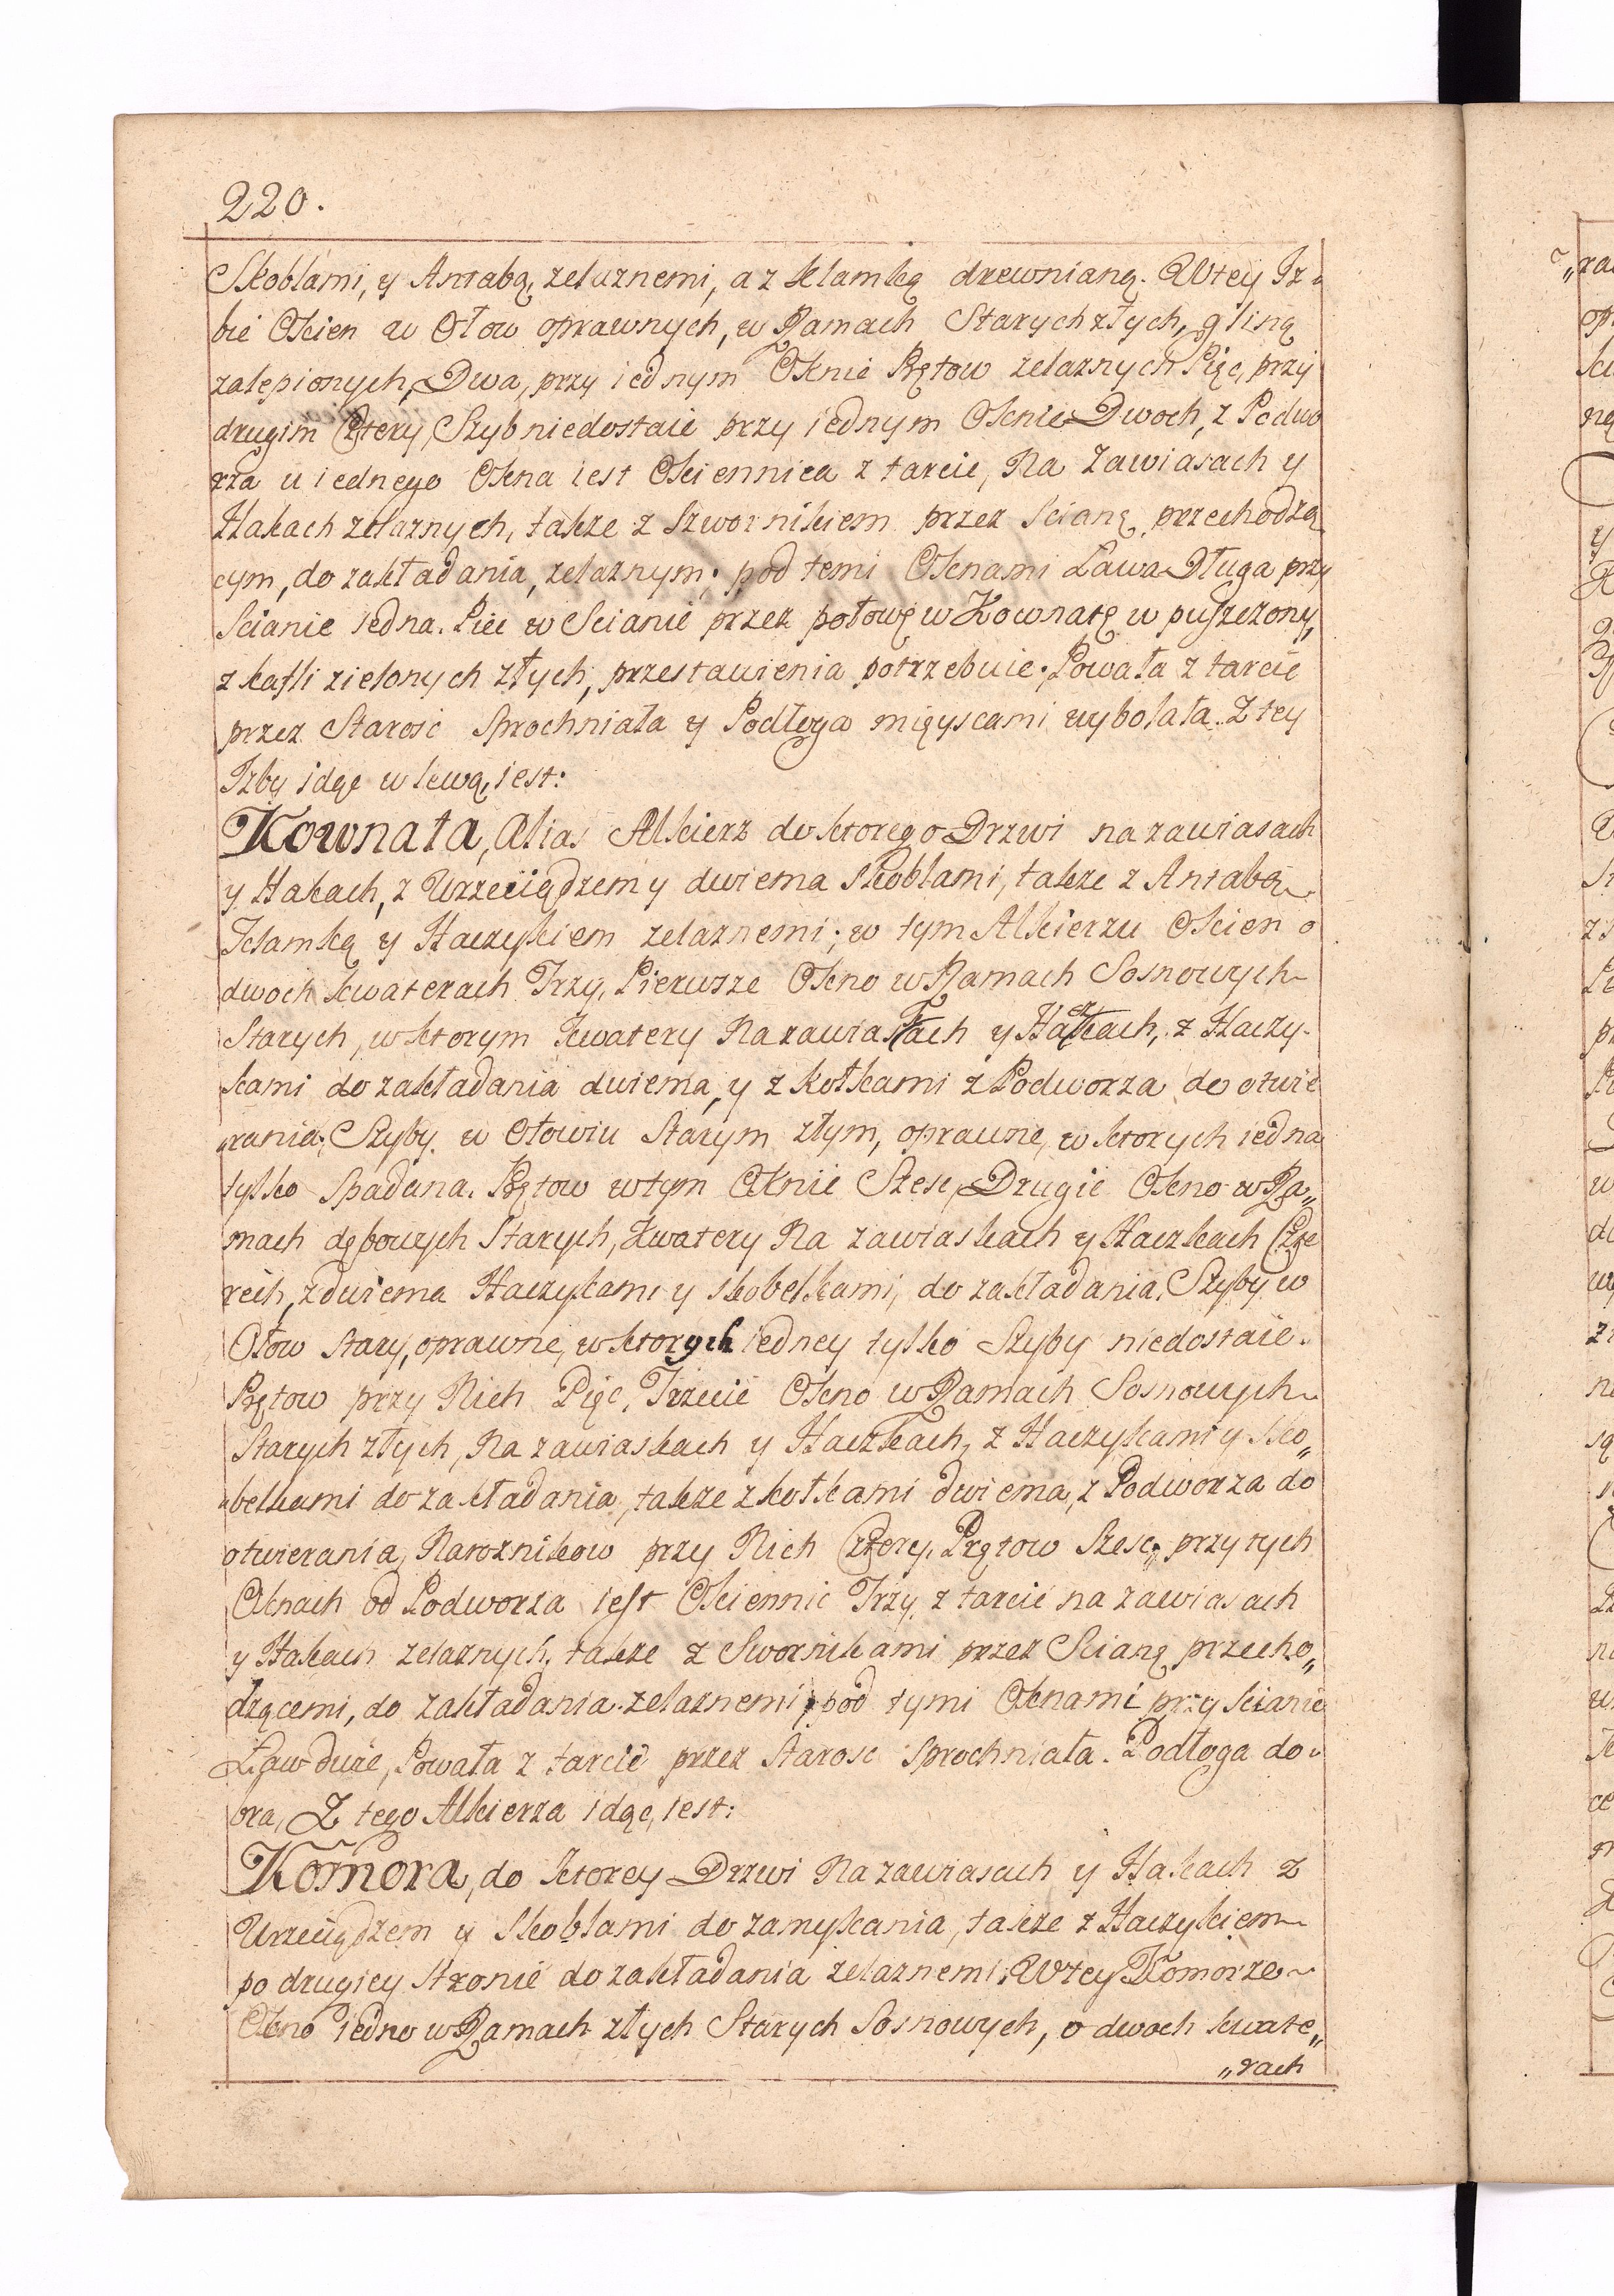 220.
Skoblami, y Antabą, zelaznemi, a z klamką drewnianą. W tey Iz-
bie Okien w Ołow oprawnych, w Ramach Starych złych, gliną
zalepionych, Dwa, przy iednym Oknie Prętow zelaznych Pięc, przy
drugim Cztery, Szyb niedostaie przy iednym Oknie Dwoch, z Podwo
rza u iednego Okna iest Okiennica z tarcic, Na Zawiasach y
Hakach zelaznych, także z Szwornikiem przez Scianę przechodzą
cym, do zakładania, zelaznym; pod temi Oknami Ława Długa przy
Scianie iedna. Piec w Scianie przez połowę w Kownatę wpuszczony,
z kafli zielonych złych, przestawienia potrzebuie. Powała z tarcic
przez Starośc Sprochniała y Podłoga mieyscami wybolała. Z tey
Izby idąc w lewą, iest:
Kownata, Alias Alkierz do ktorego Drzwi na zawiasach
y Hakach, z Wrzeciądzem y dwiema Skoblami, także z Antabą
Klamką y Haczykiem zelaznemi; w tym Alkierzu Okien o
dwoch kwaterach Trzy, Pierwsze Okno w Ramach Sosnowych
Starych, w ktorym kwatery Na zawiaskach y Haczkach, z Haczy-
kami do zakładania dwiema, y z kołkami z Podworza do otwie
rania; Szyby w Ołowiu Starym złym, oprawne, w ktorych iedna
tylko Spadana. Prętow w tym Oknie Szesc, Drugie Okno w Ra„
mach dębowych Starych, kwatery Na zawiaskach y Haczkach Czte
rech, z dwiema Haczykami y skobelkami, do zakładania, Szyby w
Ołow Stary, oprawne, w ktorych iedney tylko Szyby niedostaie.
Prętow przy Nich Pięc, Trzecie Okno w Ramach Sosnowych
Starych złych, Na zawiaskach y Haczkach, z Haczykami y Sko„
belkami do zakładania, także z kołkami dwiema, z Podworza do
otwierania, Narożnikow przy Nich Cztery, Prętow Szesc, przy tych
Oknach od Podworza iest Okiennic Trzy z tarcic na zawiasach
y Hakach zelaznych, także z Swornikami przez Scianę przecho„
dzącemi, do zakładania zelaznemi, pod tymi Oknami przy Scianie
Ław dwie, Powała z tarcic przez Starosc Sprochniała. Podłoga do„
bra, Z tego Alkierza idąc, iest:
Komora, do ktorey Drzwi Na zawiasach y Hakach z
Wrzeciądzem y Skoblami do zamykania, także z Haczykiem
po drugiey Stronie do zakładania zelaznemi. W tey Komorze
Okno iedno w Ramach złych Starych Sosnowych, o dwoch kwate„
„rach